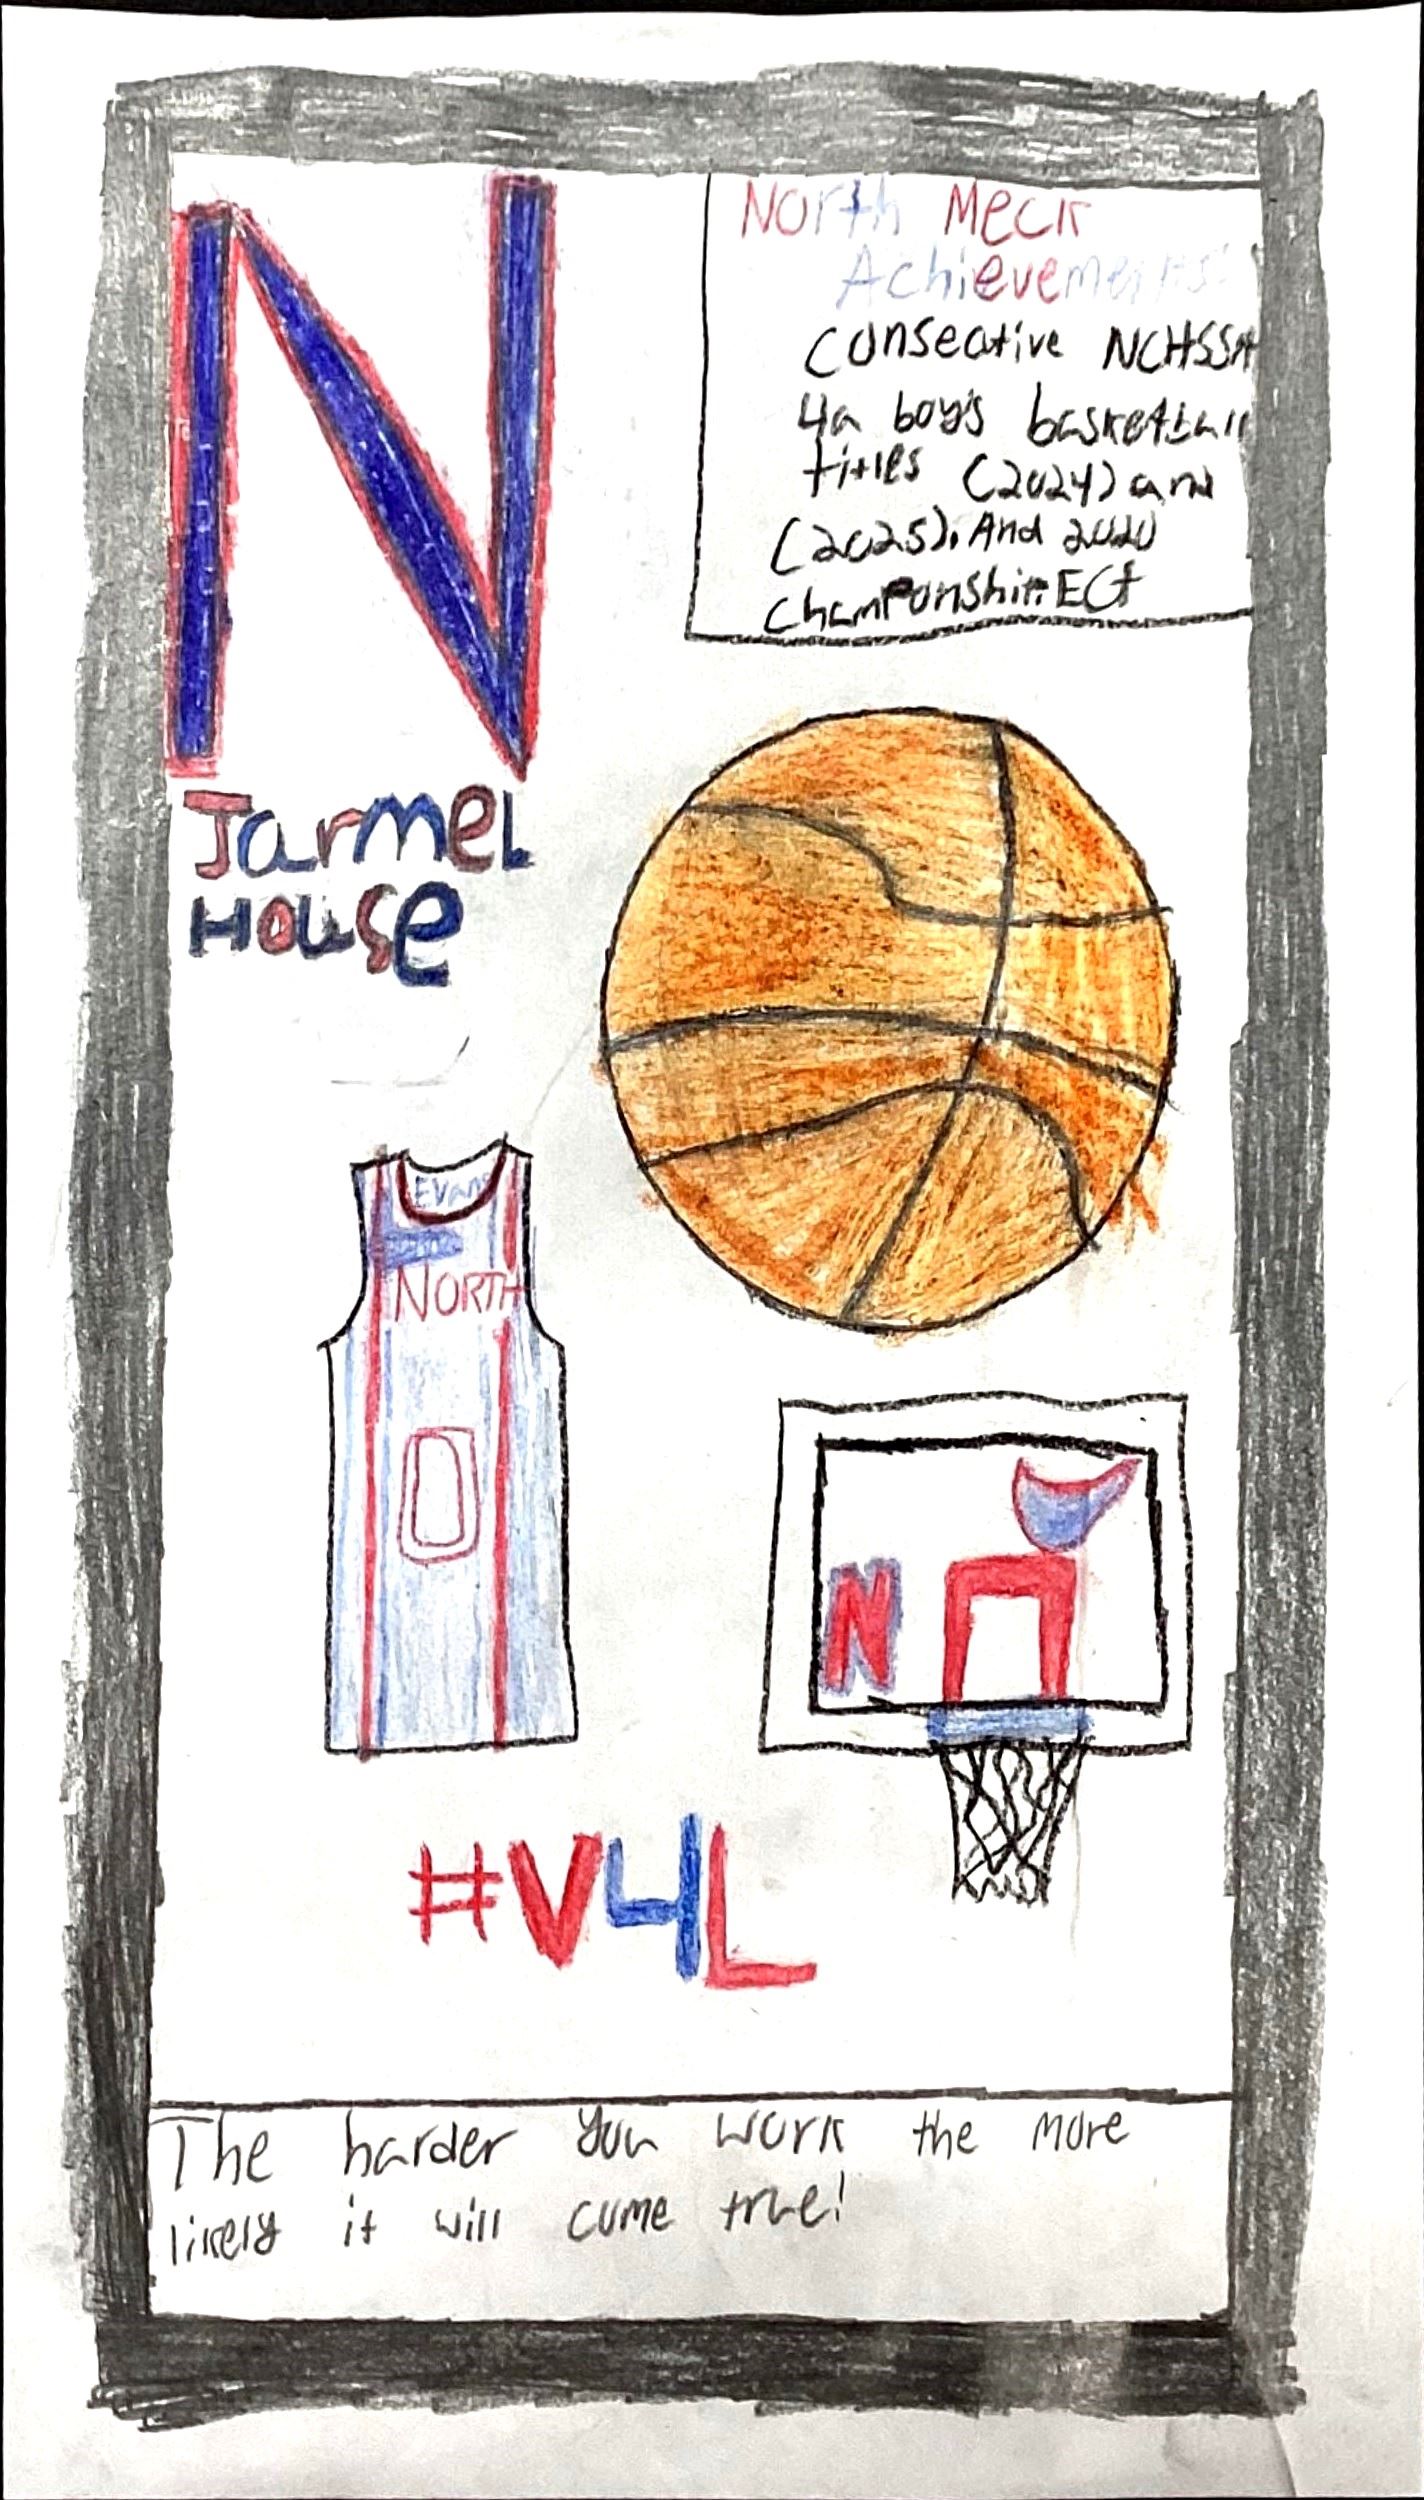 N
North Meck
Achievements:
Consecative NCHSSA
4a boy's basketball
titles (2024) and
(2025). And 2020
Champonship. ECt
Jarmel
House
Evans
NORTH
0
N
#V4L
The harder you work the more
likely it will come true!